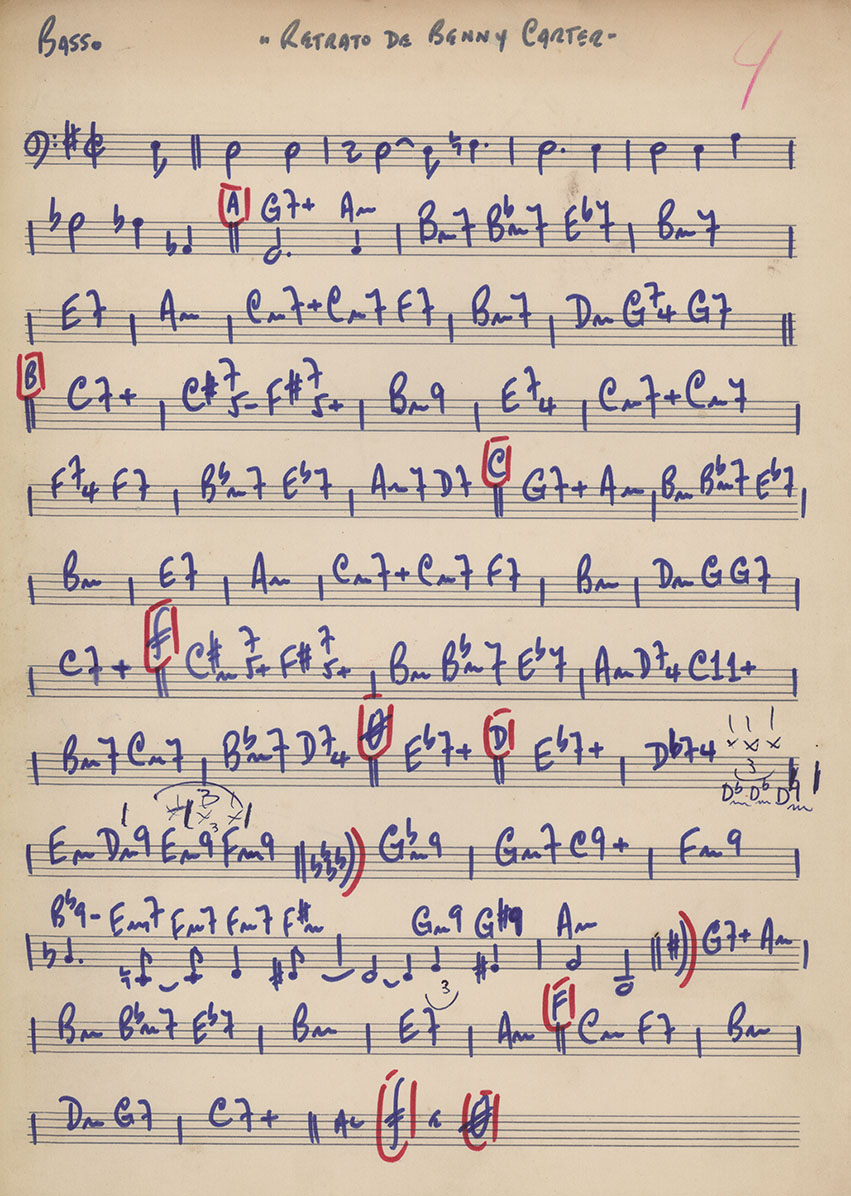 BASSO "RETRATO DE BENNY CARTER" 4
A G7+ Am Bm7 Bbm7 Eb7 Bm7
E7 Am Cm7+ Cm7 F7 Bm7 Dm G74 G7
B C7+ C#75- F#75+ Bm9 E74 Cm7+ Cm7
F74 F7 Bbm7 Eb7 Am7 D7 C G7+ Am Bm Bbm7 Eb7
Bm E7 Am Cm7+ Cm7 F7 Bm Dm G G7
C7+ C#m75+ F#75+ Bm Bbm7 Eb7 Am D74 C11+
Bm7 Cm7 Bbm7 D74 Eb7+ D Eb7+ Db74
3
Dbm Dbm D9m
3 3
Em Dm9 Em9 Fm9 Gbm9 Gm7 C9+ Fm9
Bb9- Em7 Fm7 Fm7 F#m Gm9 G#9 Am G7+ Am
3
Bm Bbm7 Eb7 Bm E7 Am F Cm F7 Bm
Dm G7 C7+